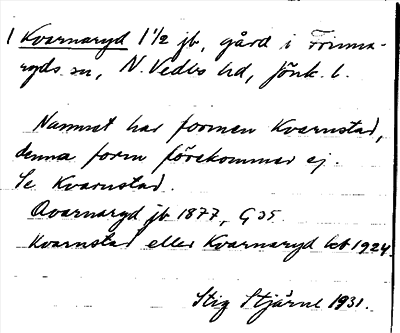 1 Kvarnaryd 1 1/2 jb, gård i Forma-
ryds sn, N. Vedbo hd, Jönk. l.
Namnet har formen Kvarnstad,
denna form förekommer ej.
Se Kvarnstad.
Qvarnaryd jb 1877, G 35.
Kvarnstad eller Kvarnaryd kat 1924.
Stig Stjärne 1931.